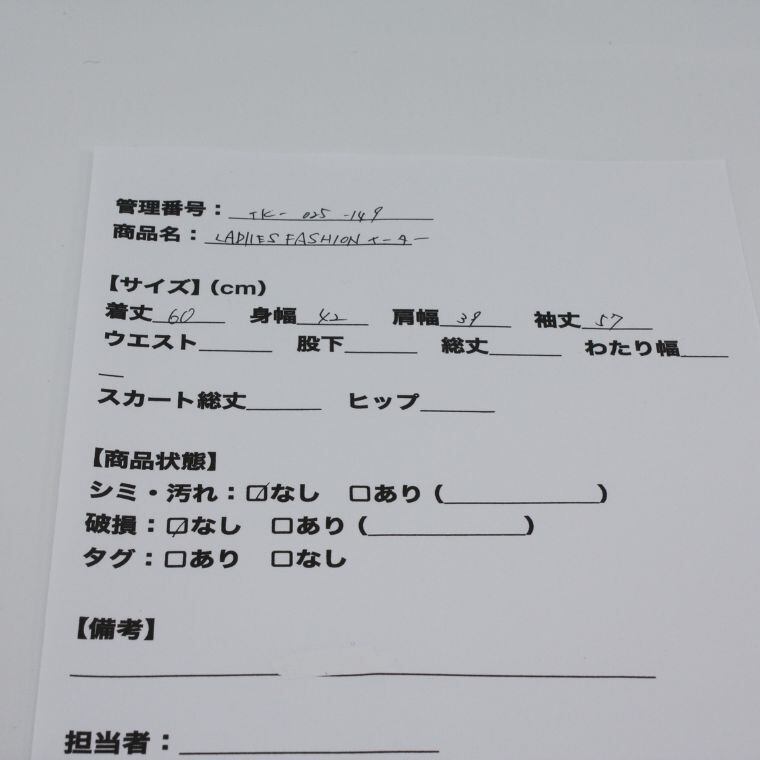 管理番号：TK-025-149
商品名：LADIIES FASHION セーター
【サイズ】(cm)
着丈 60 身幅 42 肩幅 39 袖丈 57
ウエスト______ 股下______ 総丈______ わたり幅____
__
スカート総丈______ ヒップ______
【商品状態】
シミ・汚れ：☑なし □あり (____________)
破損：☑なし □あり (____________)
タグ：□あり □なし
【備考】
担当者：____________________